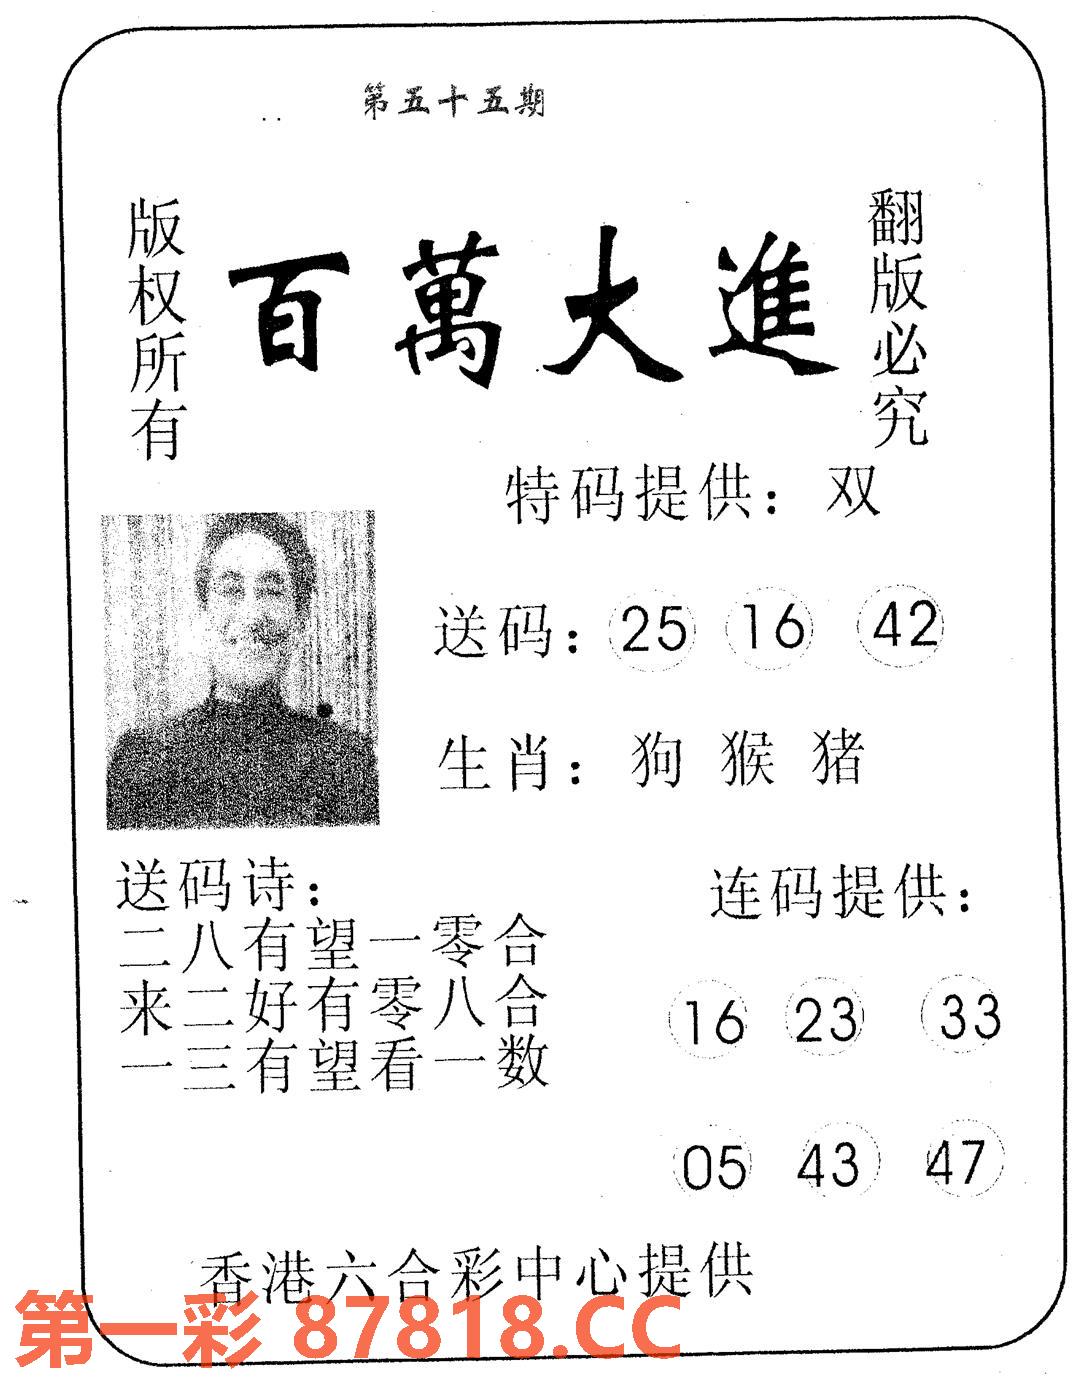 第五十五期
版权所有
百萬大進
翻版必究
特码提供：双
送码：25 16 42
生肖：狗 猴 猪
送码诗：
二八有望一零合
来二好有零八合
一三有望看一数
连码提供：
16 23 33
05 43 47
香港六合彩中心提供
第一彩 87818.CC